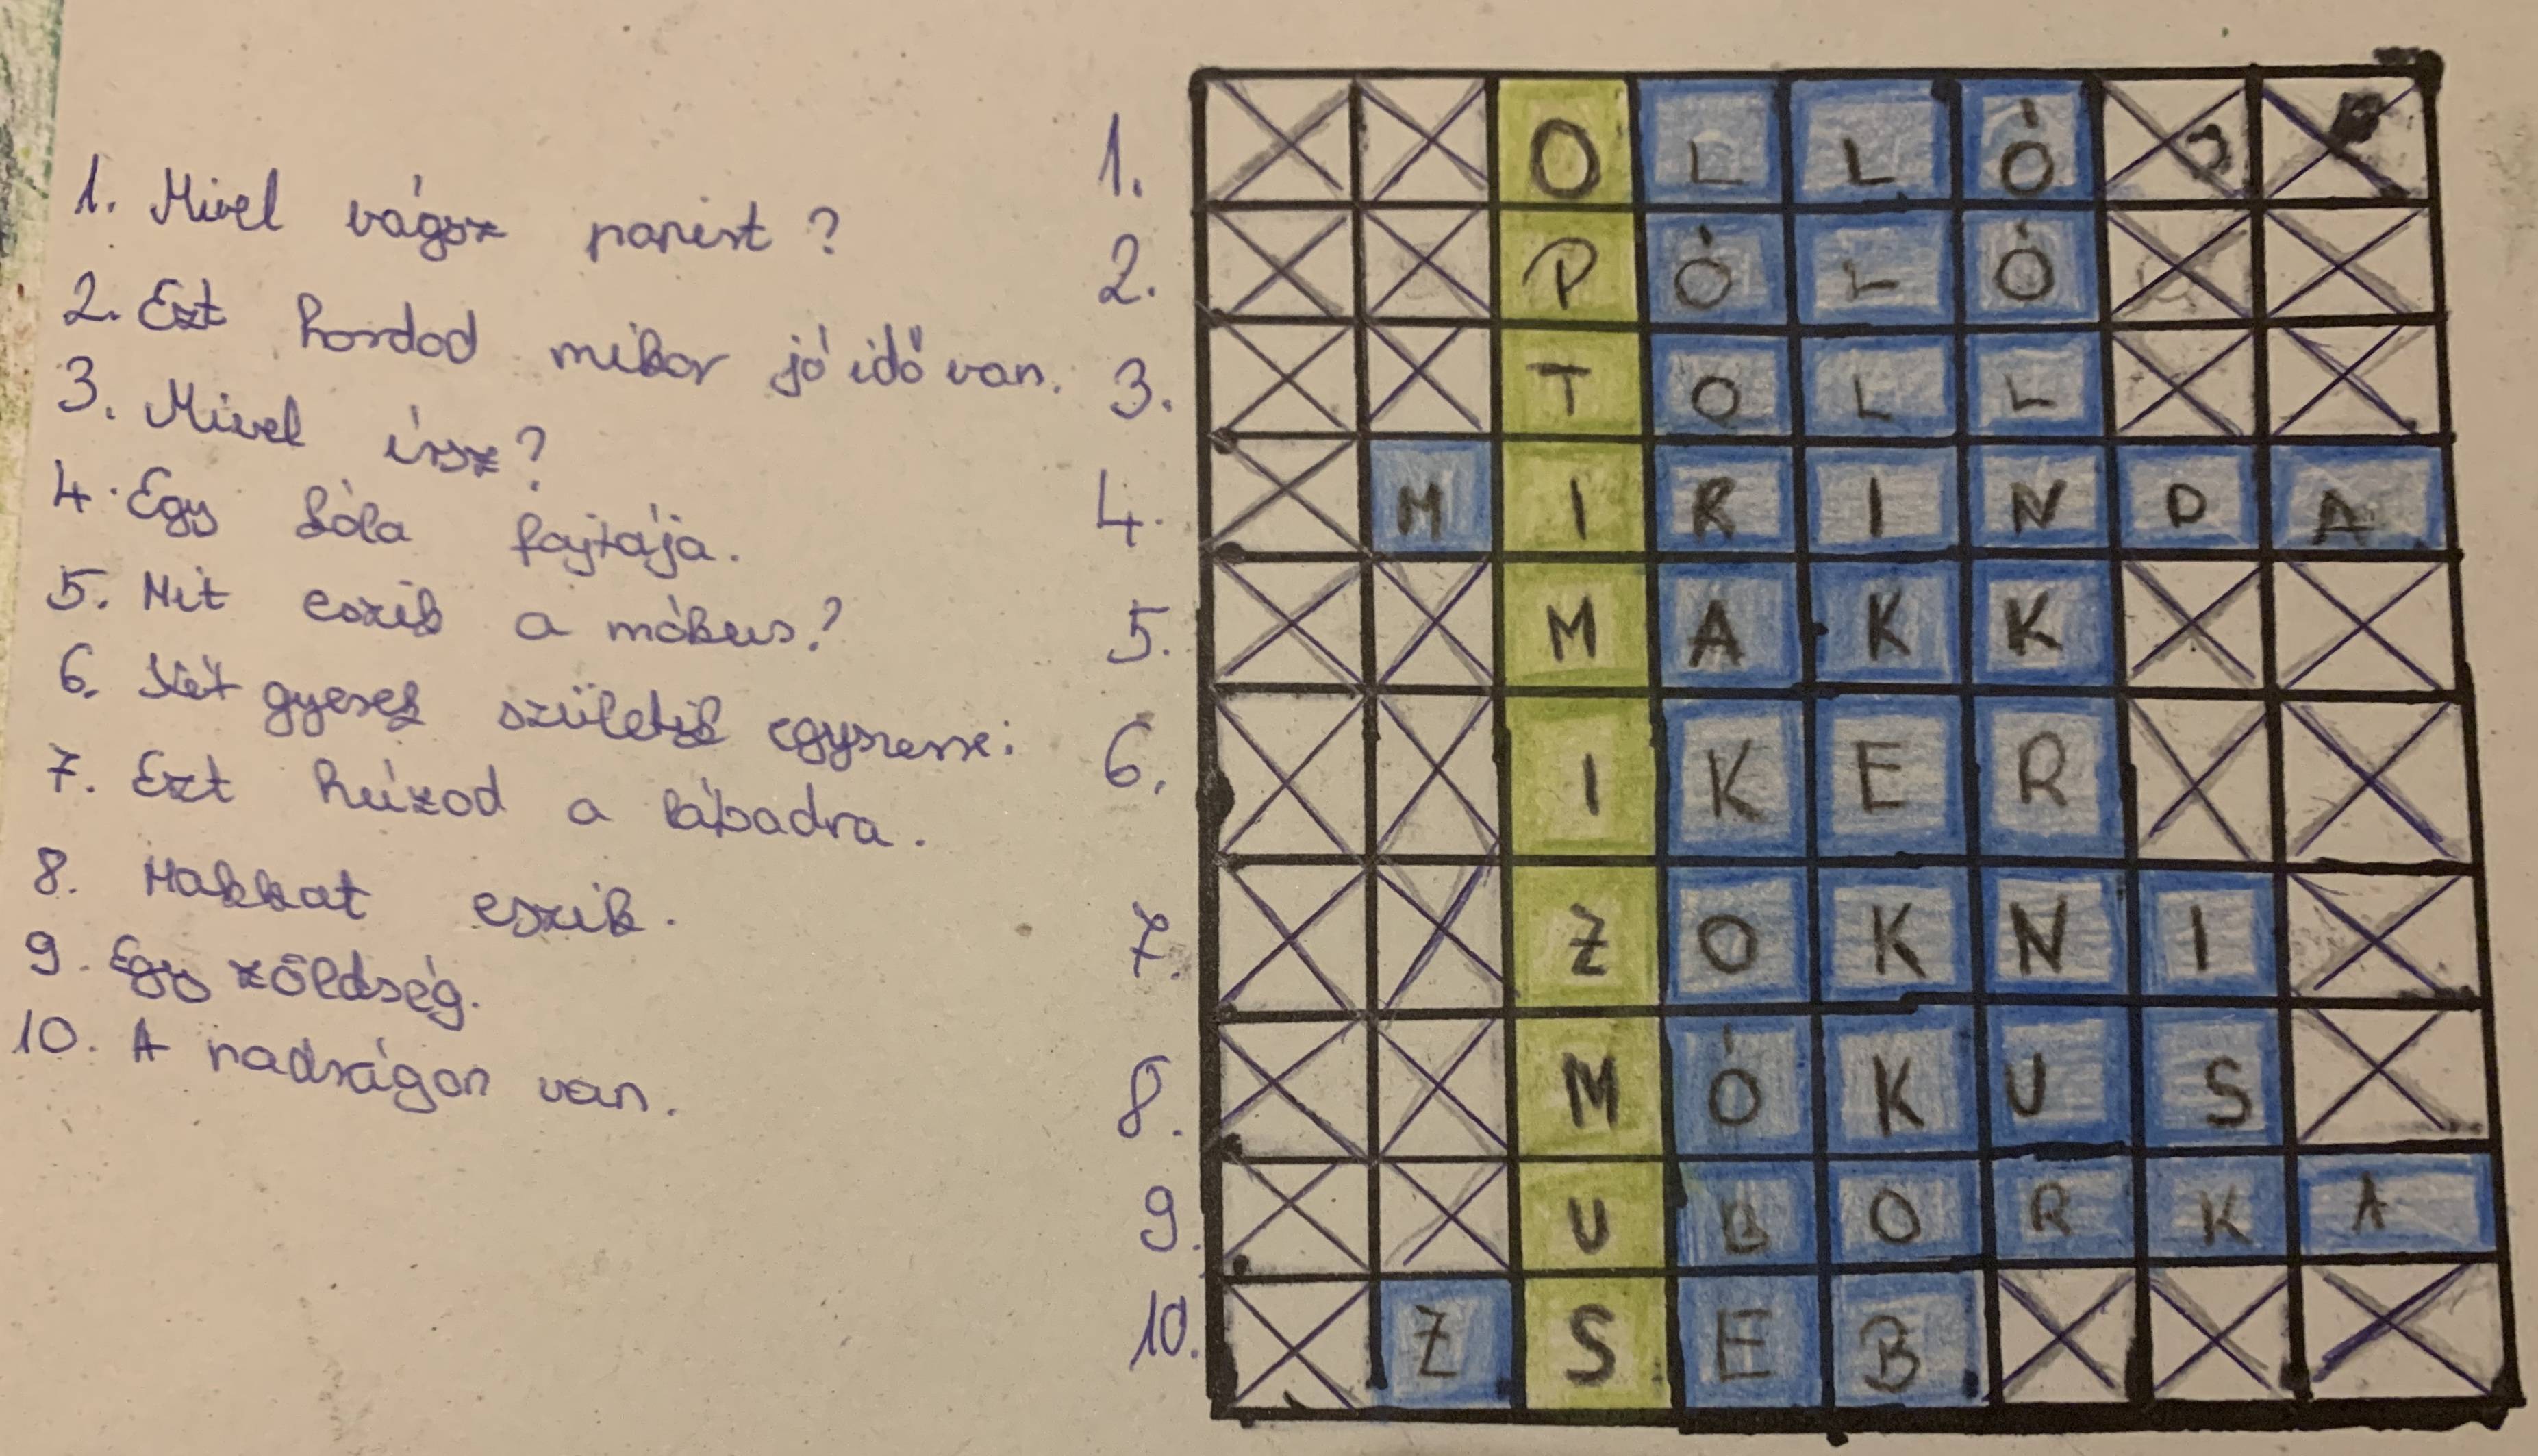 1. Mivel vágsz papírt?
2. Ezt hordod mikor jó idő van.
3. Mivel írsz?
4. Egy kóla fajtája.
5. Mit eszik a mókus?
6. Két gyerek születik egyszerre:
7. Ezt húzod a lábadra.
8. Makkat eszik.
9. Egy zöldség.
10. A nadrágon van.
1. O L L Ó
2. P Ó L Ó
3. T O L L
4. M I R I N D A
5. M A K K
6. I K E R
7. Z O K N I
8. M Ó K U S
9. U B O R K A
10. Z S E B